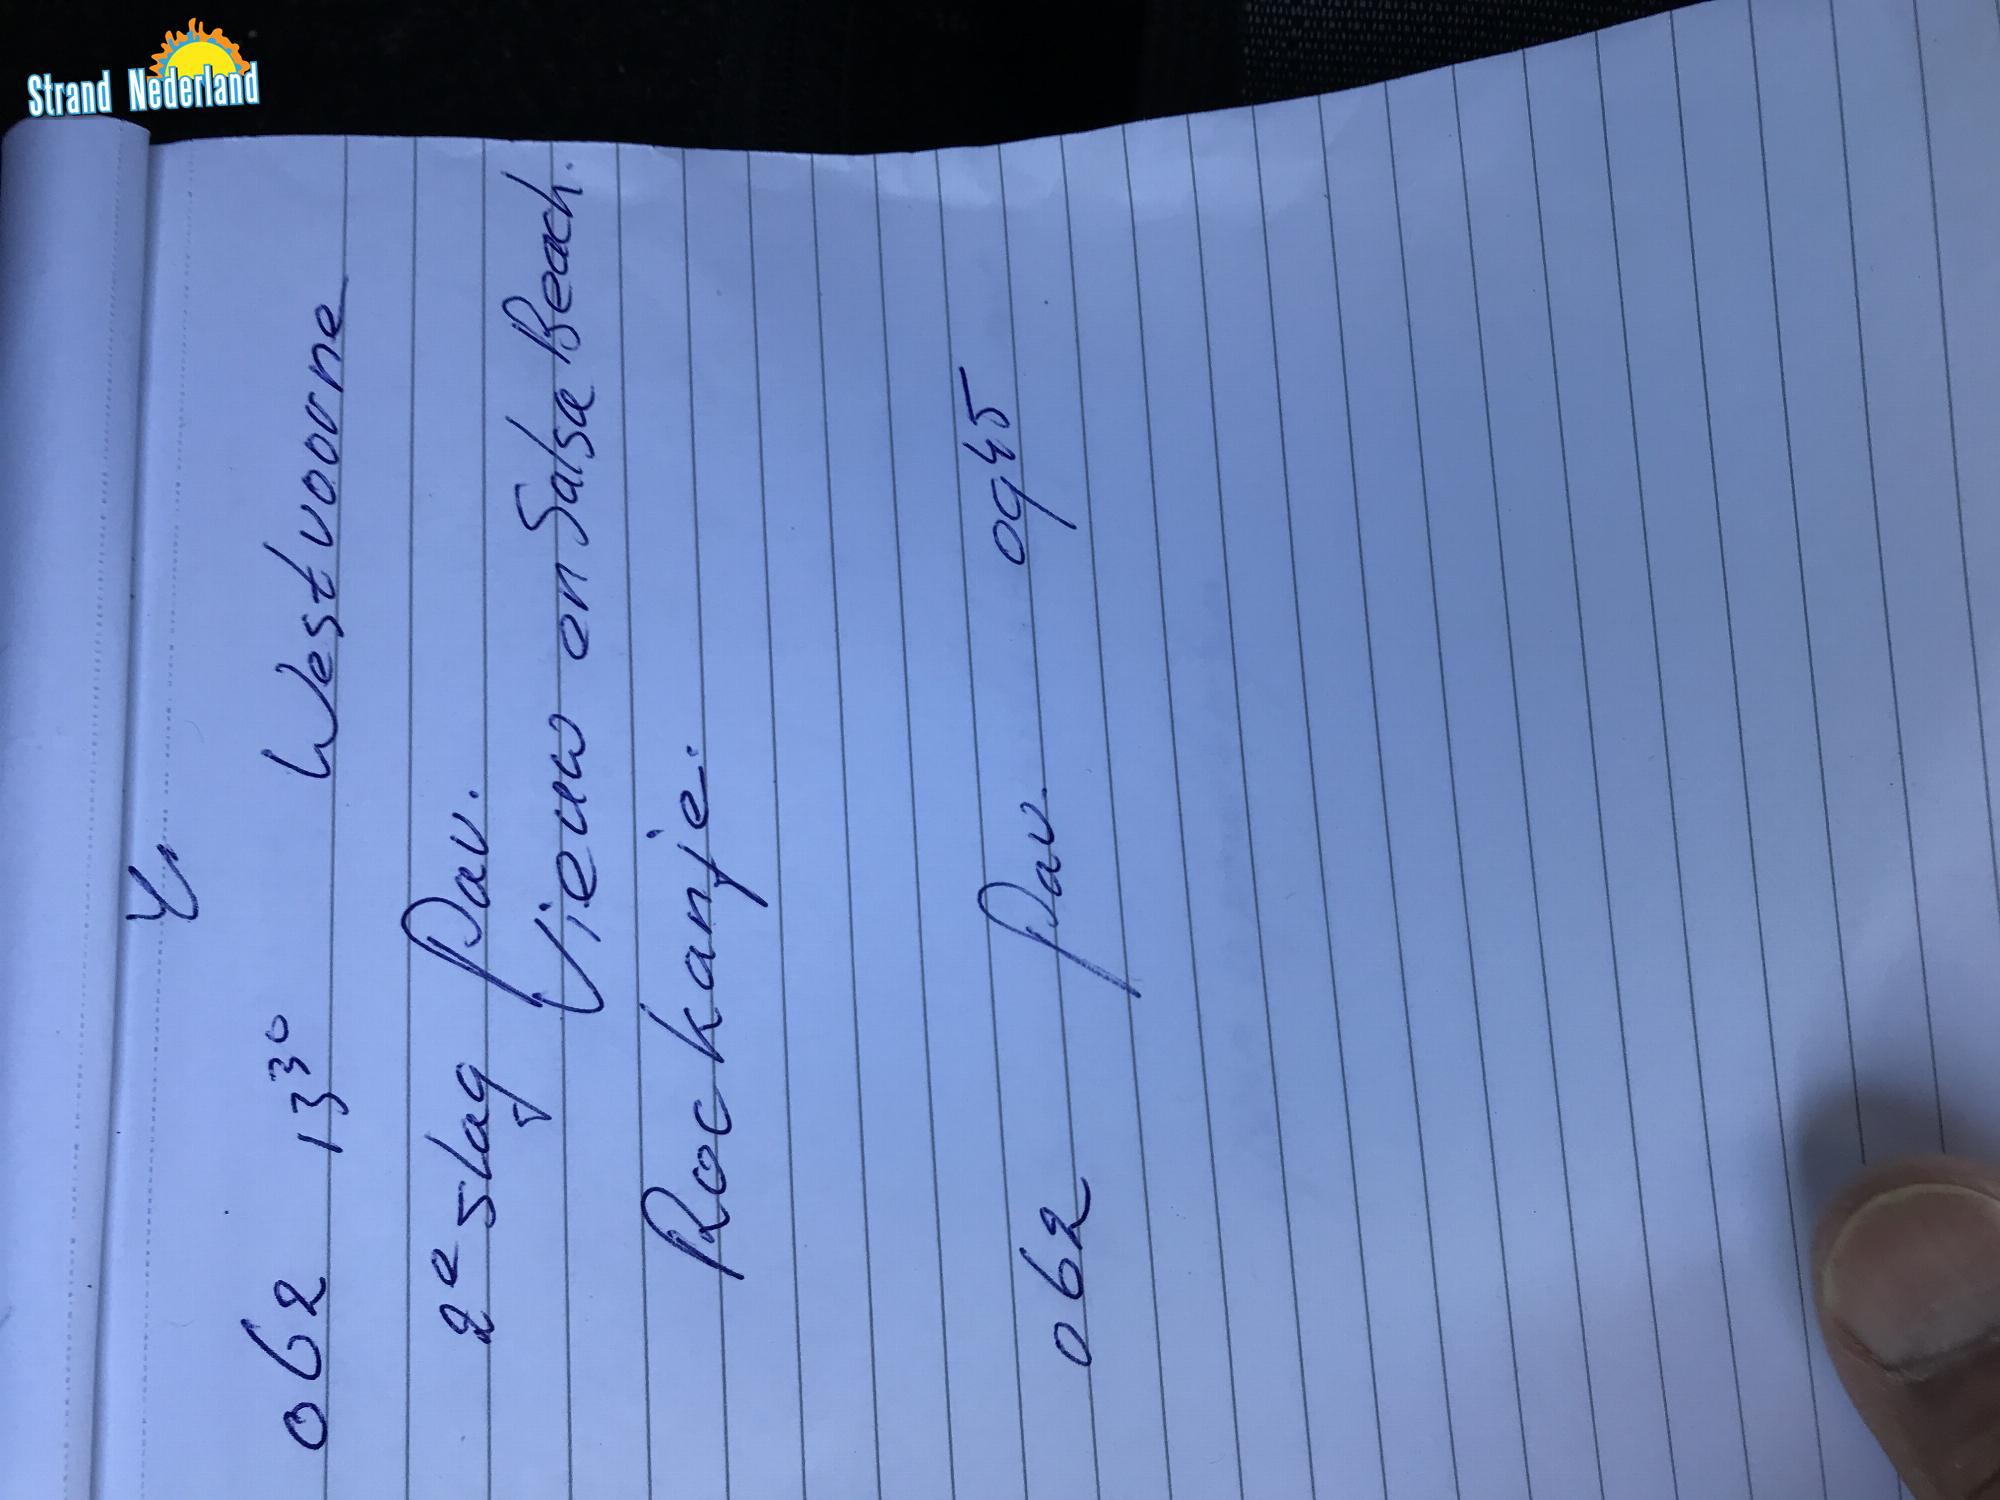 Strand Nederland
062 13³⁰ Westvoorne
2e slag Pav.
View en Salsa Beach.
Rockanje.
062 Pav. 0945